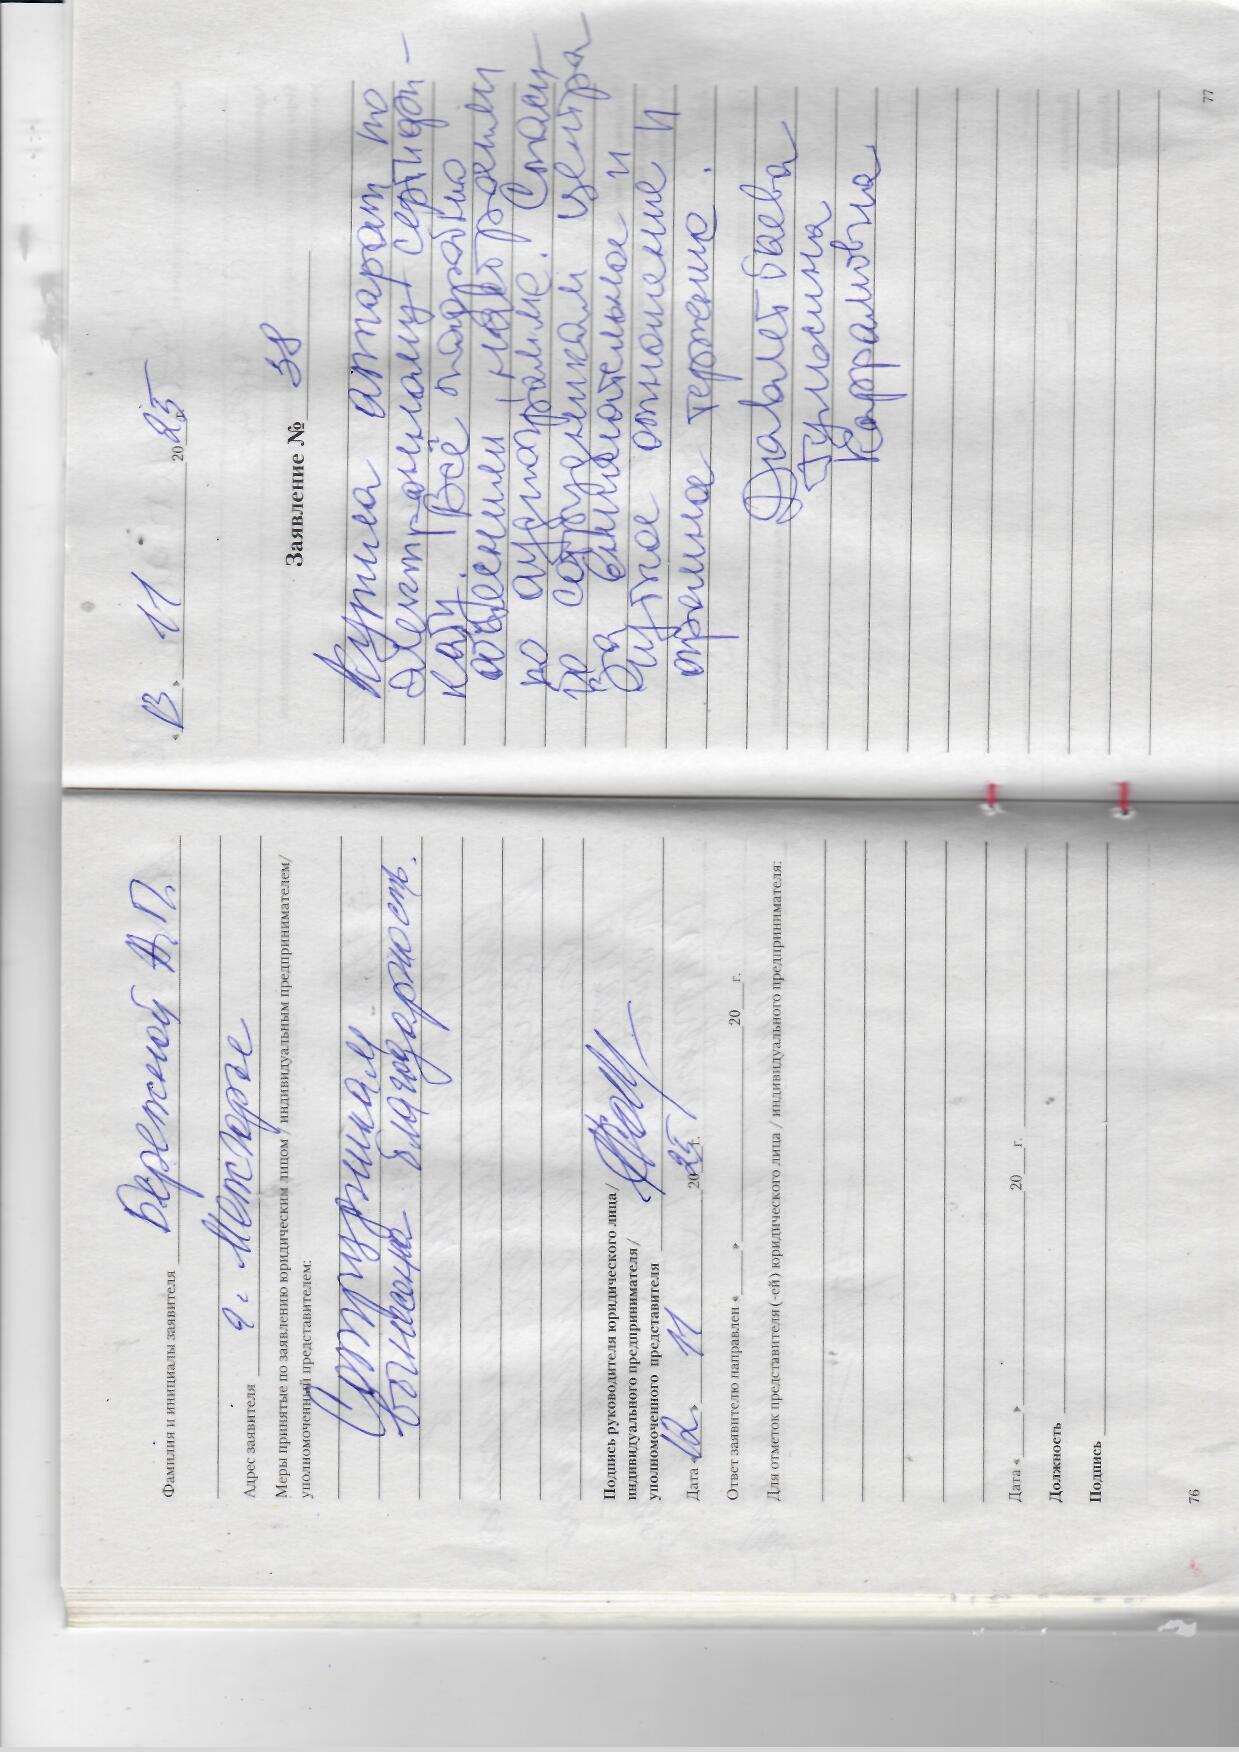 Фамилия и инициалы заявителя Бережной А.П.
Адрес заявителя г. Межгорье
Меры принятые по заявлению юридическим лицом / индивидуальным предпринимателем/
уполномоченный представителем:
Сотрудникам
вынесена благодарность.
Подпись руководителя юридического лица/
индивидуального предпринимателя/
уполномоченного представителя
Дата «12» 11 2025 г.
Ответ заявителю направлен «___» ___ 20__ г.
Для отметок представителя (-ей) юридического лица / индивидуального предпринимателя:
Дата «___» ___ 20__ г.
Должность
Подпись
76
«13» 11 2025
Заявление № 38
Купила аппарат по
электронному сертифи-
кату. Всё подробно
объяснили настроили
по аудиограмме. Спаси-
бо сотрудникам центра
за внимательное и
чуткое отношение и
огромное терпение.
Давлетбаева
Гульсина